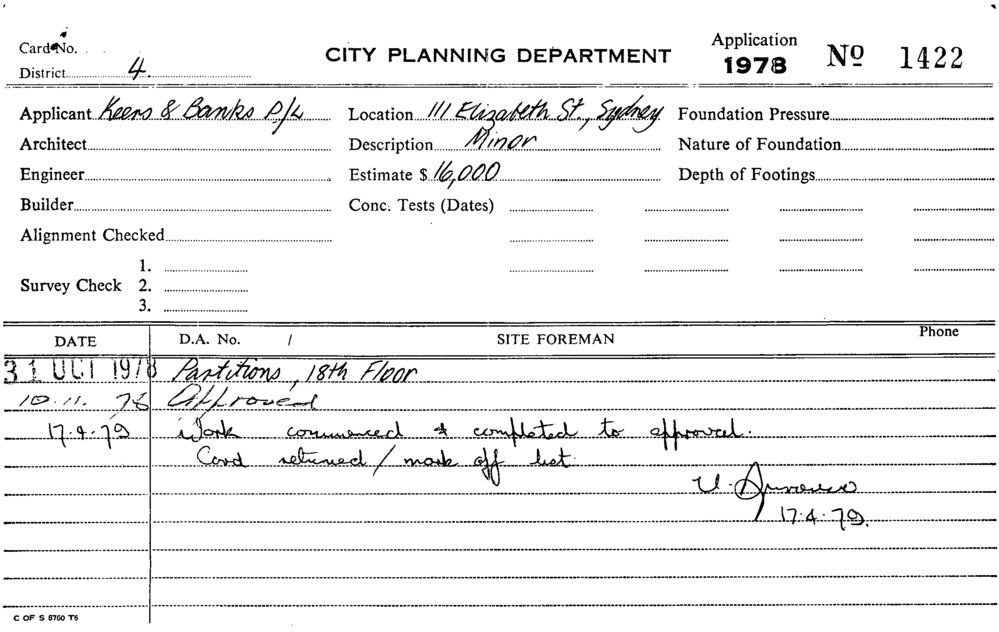 Card No.
District 4.
CITY PLANNING DEPARTMENT
Application
1978
No 1422
Applicant Keers & Banks P/L
Location 111 Elizabeth St., Sydney
Foundation Pressure
Architect
Description Minor
Nature of Foundation
Engineer
Estimate $ 16,000
Depth of Footings
Builder
Conc. Tests (Dates)
Alignment Checked
Survey Check
1.
2.
3.
DATE
D.A. No. /
SITE FOREMAN
Phone
31 OCT 1978 Partitions, 18th Floor
10. 11. 78 Approved
17.4.79 Work commenced & completed to approval.
Card returned / mark off list.
U.
17.4.79.
C OF S 8760 T6